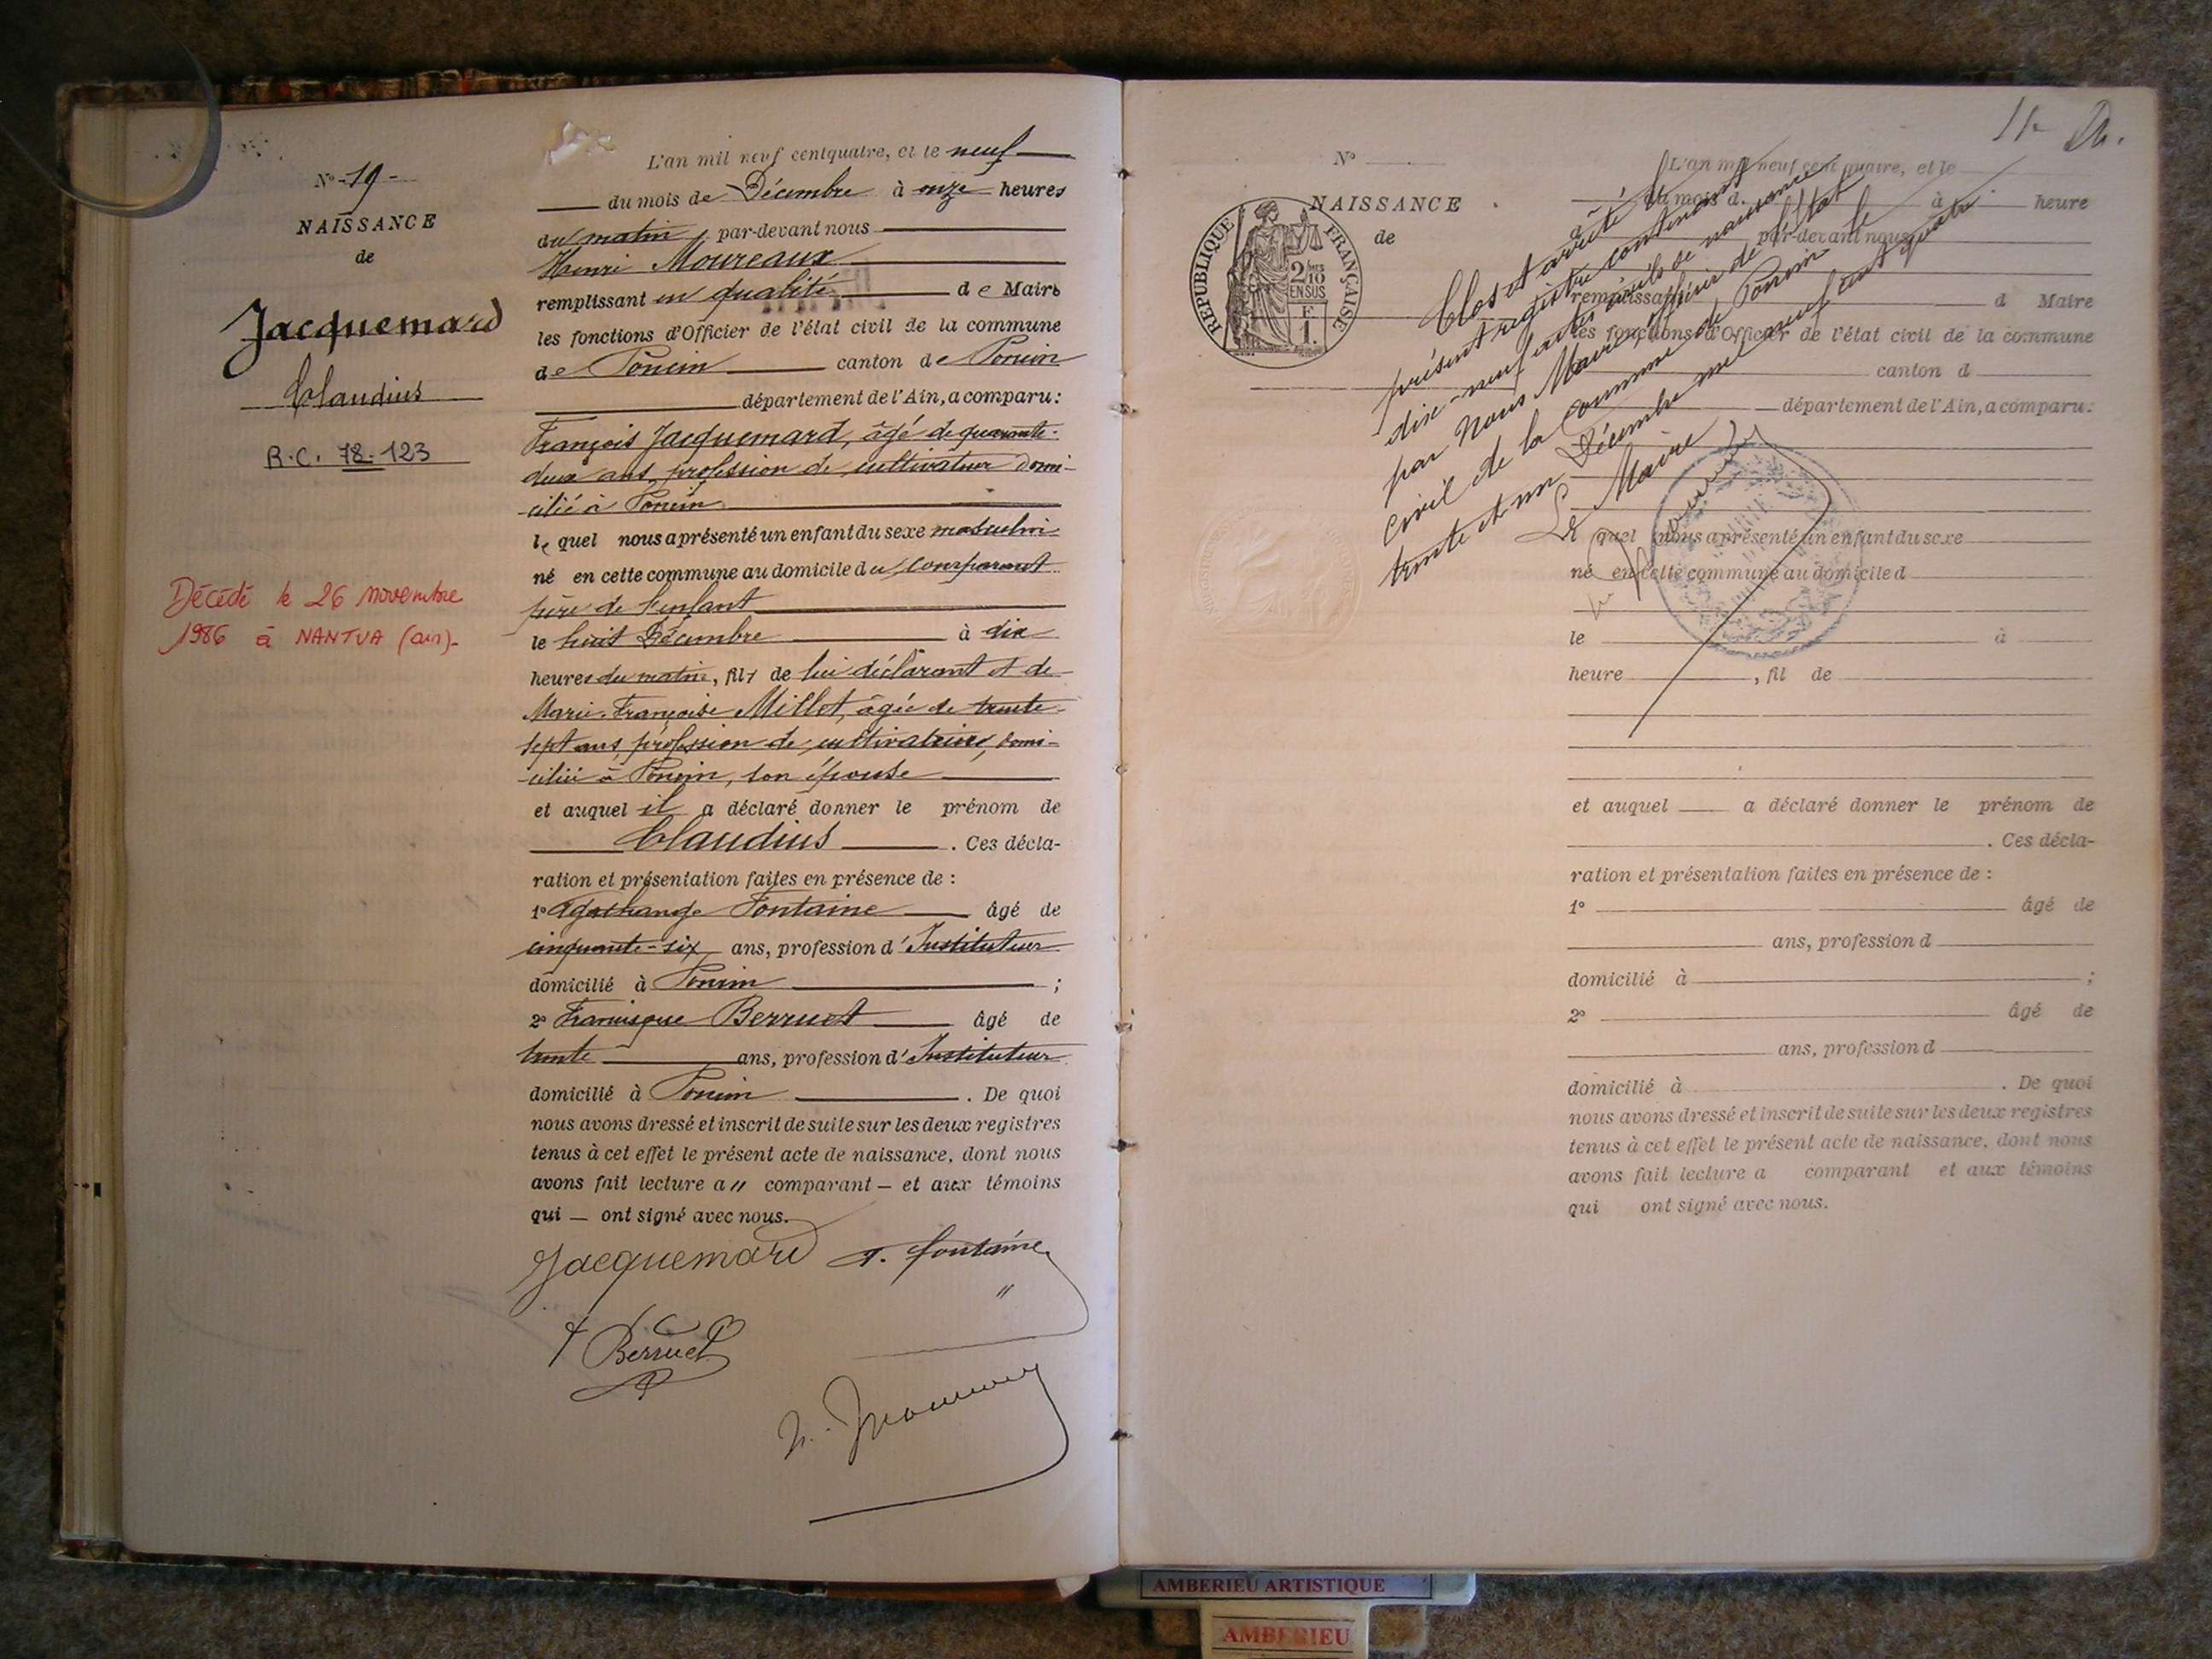 N° - 19 -
NAISSANCE
de
Jacquemard
Claudius
R.C. 78-123
Décédé le 26 novembre
1986 à NANTUA (ain)-
L'an mil neuf cent quatre, et le neuf
du mois de Décembre à onze heures
du matin, par-devant nous
Henri Moureaux
remplissant en qualité de Maire
les fonctions d'Officier de l'état civil de la commune
de Poncin canton de Poncin
département de l'Ain, a comparu:
François Jacquemard, âgé de quarante-
deux ans profession de cultivateur domi-
cilié à Poncin
lequel nous a présenté un enfant du sexe masculin
né en cette commune au domicile du comparant
père de l'enfant
le huit Décembre à dix
heures du matin, fils de lui déclarant et de
Marie-Françoise Millet, âgée de trente-
sept ans, profession de cultivatrice, domi-
ciliée à Poncin, son épouse
et auquel il a déclaré donner le prénom de
Claudius . Ces décla-
ration et présentation faites en présence de :
1° Fontaine âgé de
cinquante-six ans, profession d'Instituteur
domicilié à Poncin ;
2° Francisque Berruet âgé de
trente ans, profession d'Instituteur
domicilié à Poncin . De quoi
nous avons dressé et inscrit de suite sur les deux registres
tenus à cet effet le présent acte de naissance, dont nous
avons fait lecture a" comparant — et aux témoins
qui — ont signé avec nous.
Jacquemard
fontaine
Berruet
N°
NAISSANCE
de
RÉPUBLIQUE FRANÇAISE
2/10
EN SUS
F
1.
L'an mil neuf cent quatre, et le
du mois d à heure
par-devant nous
remplissant d Maire
les fonctions d'Officier de l'état civil de la commune
canton d
département de l'Ain, a comparu:
Clos et arrêté le
présent registre contenant
dix-neuf actes civils de naissance
par nous Maire, officier de l'état
civil de la commune de Poncin le
trente et un Décembre mil neuf cent quatre
Le Maire
quel nous a présenté un enfant du sexe
né en cette commune au domicile d
le à
heure , fil de
et auquel a déclaré donner le prénom de
. Ces décla-
ration et présentation faites en présence de :
1° âgé de
ans, profession d
domicilié à ;
2° âgé de
ans, profession d
domicilié à . De quoi
nous avons dressé et inscrit de suite sur les deux registres
tenus à cet effet le présent acte de naissance, dont nous
avons fait lecture a comparant et aux témoins
qui ont signé avec nous.
AMBERIEU ARTISTIQUE
AMBERIEU